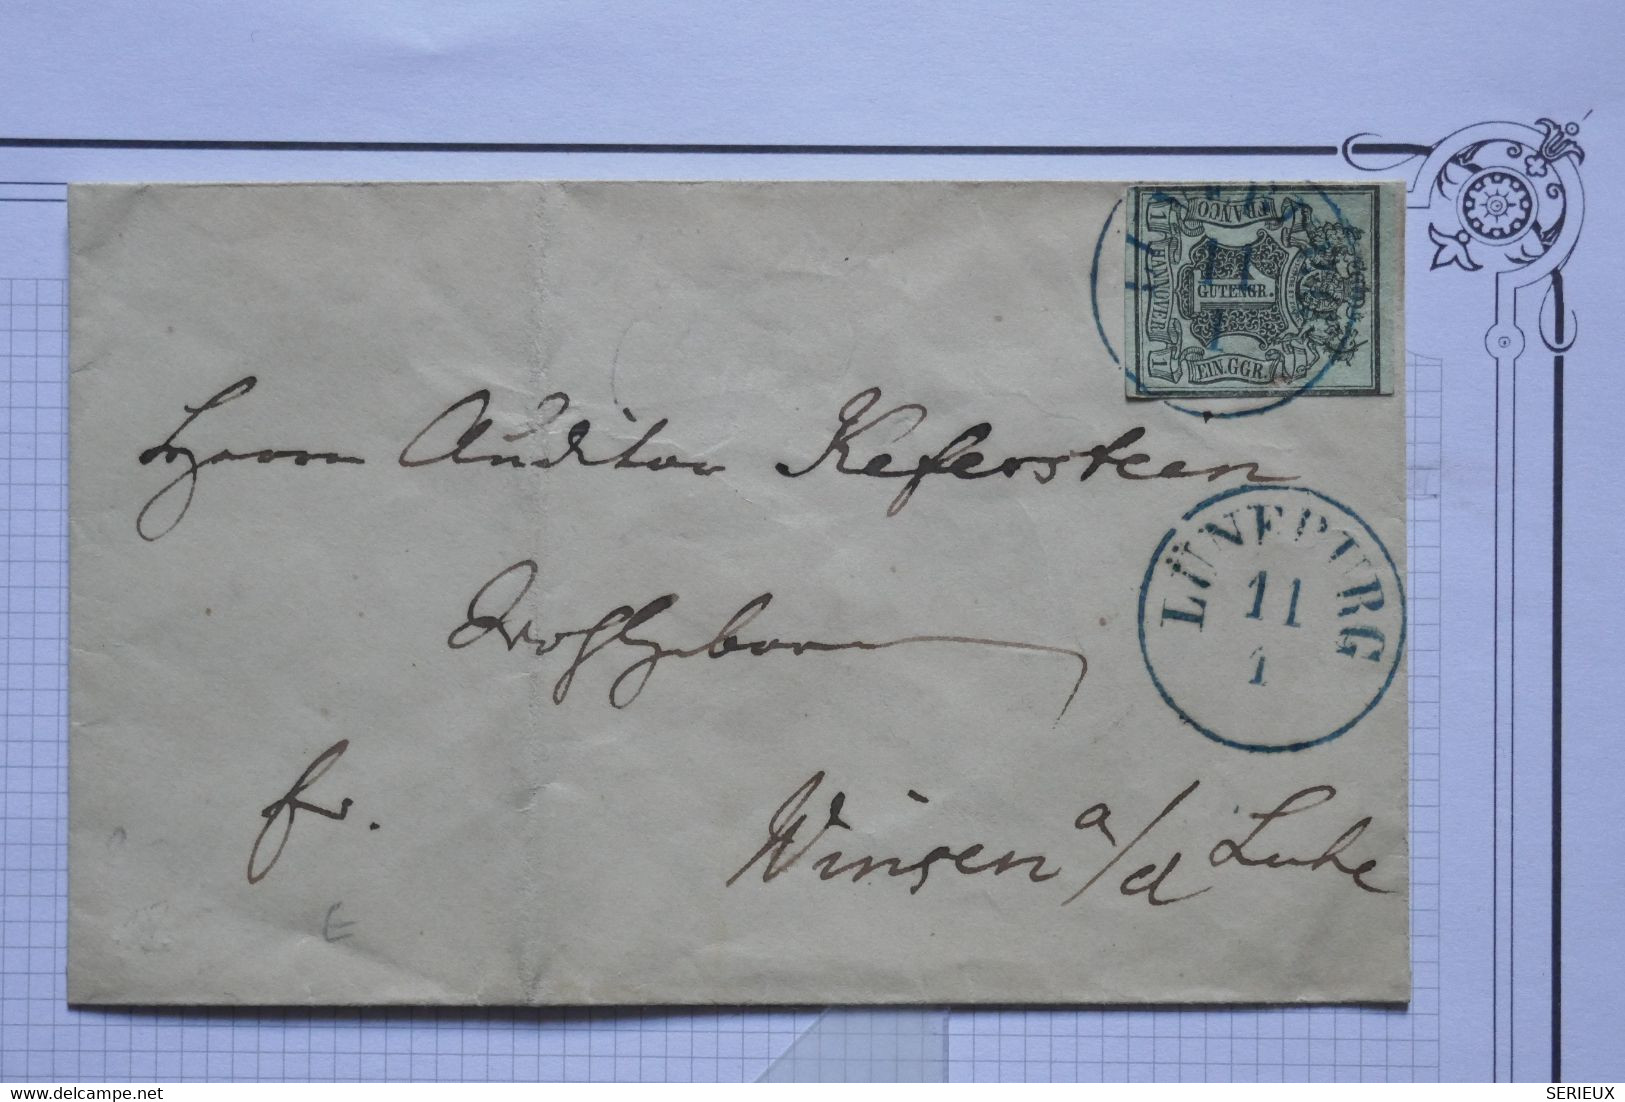 FRANCO
1 HANOVER 1
GUTENGR.
EIN.GGR.
11
1
Herrn Auditor Keferstein
Wohlgeboren
LÜNEBURG
11
1
fr.
Winsen a/d Luhe
E
SERIEUX